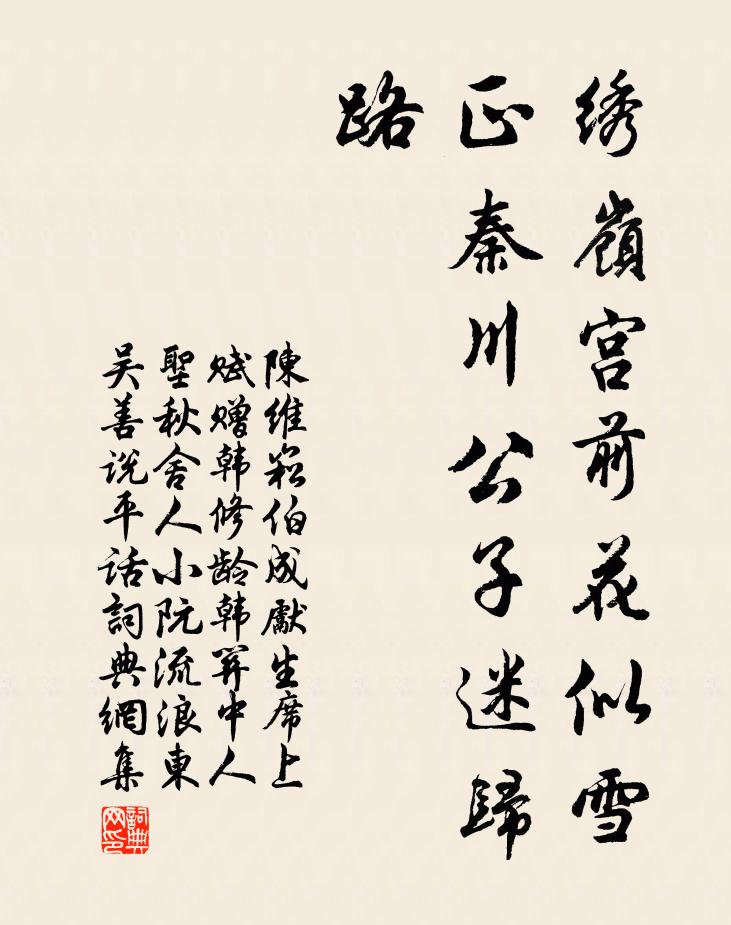 绣嶺宫前花似雪
正秦川公子迷歸
路
陳維崧伯成獻生席上
赋赠韩修龄韩关中人
聖秋舍人小阮流浪東
吴善说平话詞典網集
詞典
网印